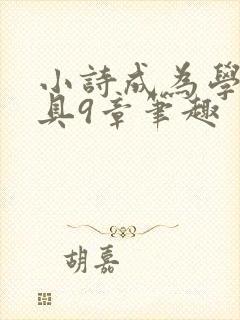 小詩成為學
具9章筆趣
胡嘉